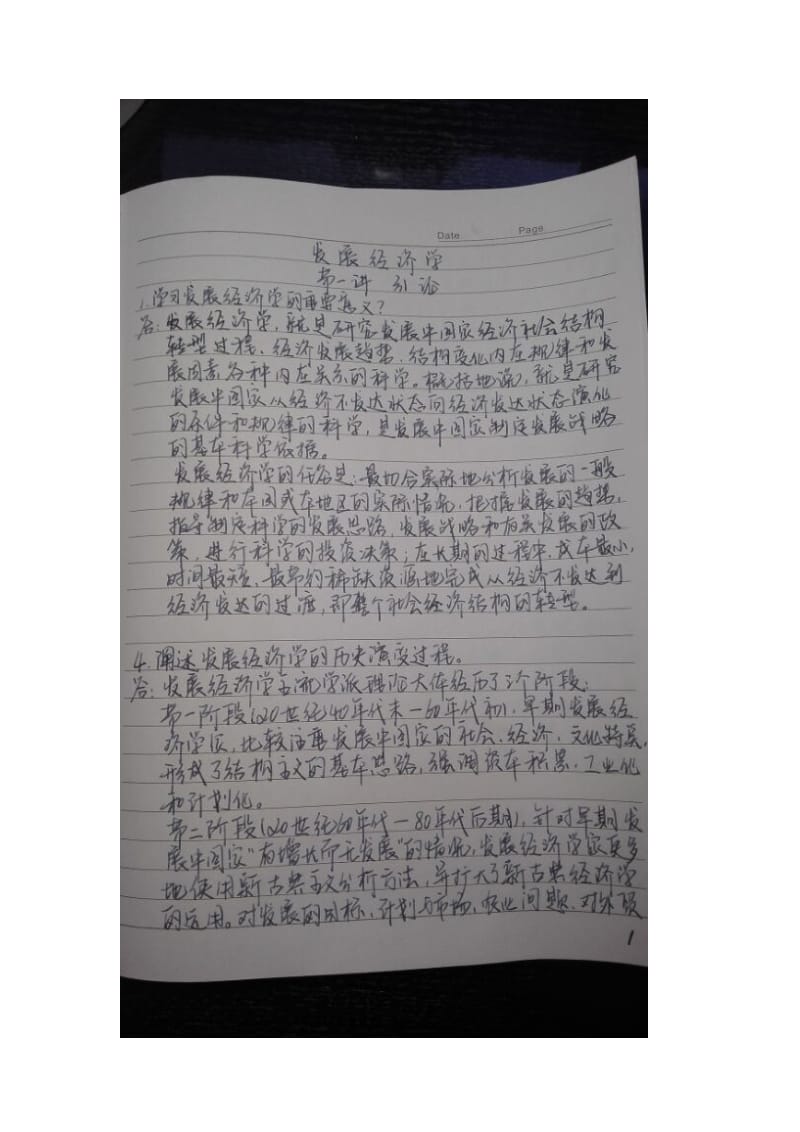 Date Page
发展经济学
第一讲 引论
1.学习发展经济学的重要意义?
答:发展经济学,就是研究发展中国家经济社会结构
转型过程、经济发展趋势、结构变化内在规律和发
展因素各种内在关系的科学。概括地说,就是研究
发展中国家从经济不发达状态向经济发达状态演化
的条件和规律的科学,是发展中国家制定发展战略
的基本科学依据。
发展经济学的任务是:最切合实际地分析发展的一般
规律和本国或本地区的实际情况,把握发展的趋势,
指导制定科学的发展思路,发展战略和有关发展的政
策,进行科学的投资决策;在长期的过程中,成本最小,
时间最短、最节约稀缺资源地完成从经济不发达到
经济发达的过渡,即整个社会经济结构的转型。
4.阐述发展经济学的历史演变过程。
答:发展经济学主流学派理论大体经历了3个阶段:
第一阶段(20世纪40年代末—60年代初),早期发展经
济学家,比较注重发展中国家的社会、经济、文化特点,
形成了结构主义的基本思路,强调资本积累、工业化
和计划化。
第二阶段(20世纪60年代—80年代后期),针对早期发
展中国家"有增长而无发展"的情况,发展经济学家更多
地使用新古典主义分析方法,并扩大了新古典经济学
的运用。对发展的目标,计划与市场,农业问题,对外贸
1